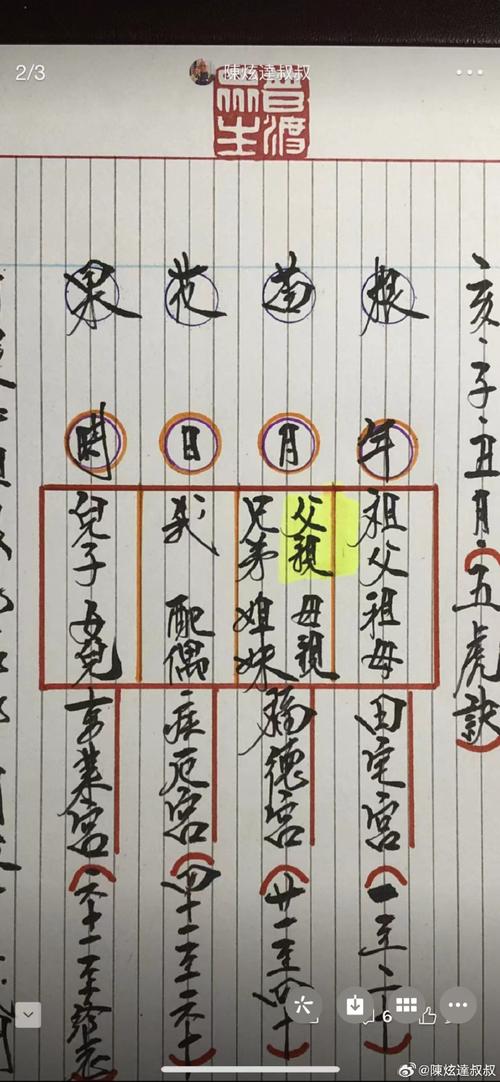 2/3
陳炫達叔叔
普渡
眾生
亥子丑月(五虎訣)
根
年
祖父祖母
田宅宮
(一至二十)
苗
月
父親 母親
兄弟 姐妹
福德宮
(廿一至四十)
花
日
我 配偶
疾厄宮
(四十一至六十)
果
時
兒子 女兒
事業宮
(六十一至終老
6
@陳炫達叔叔